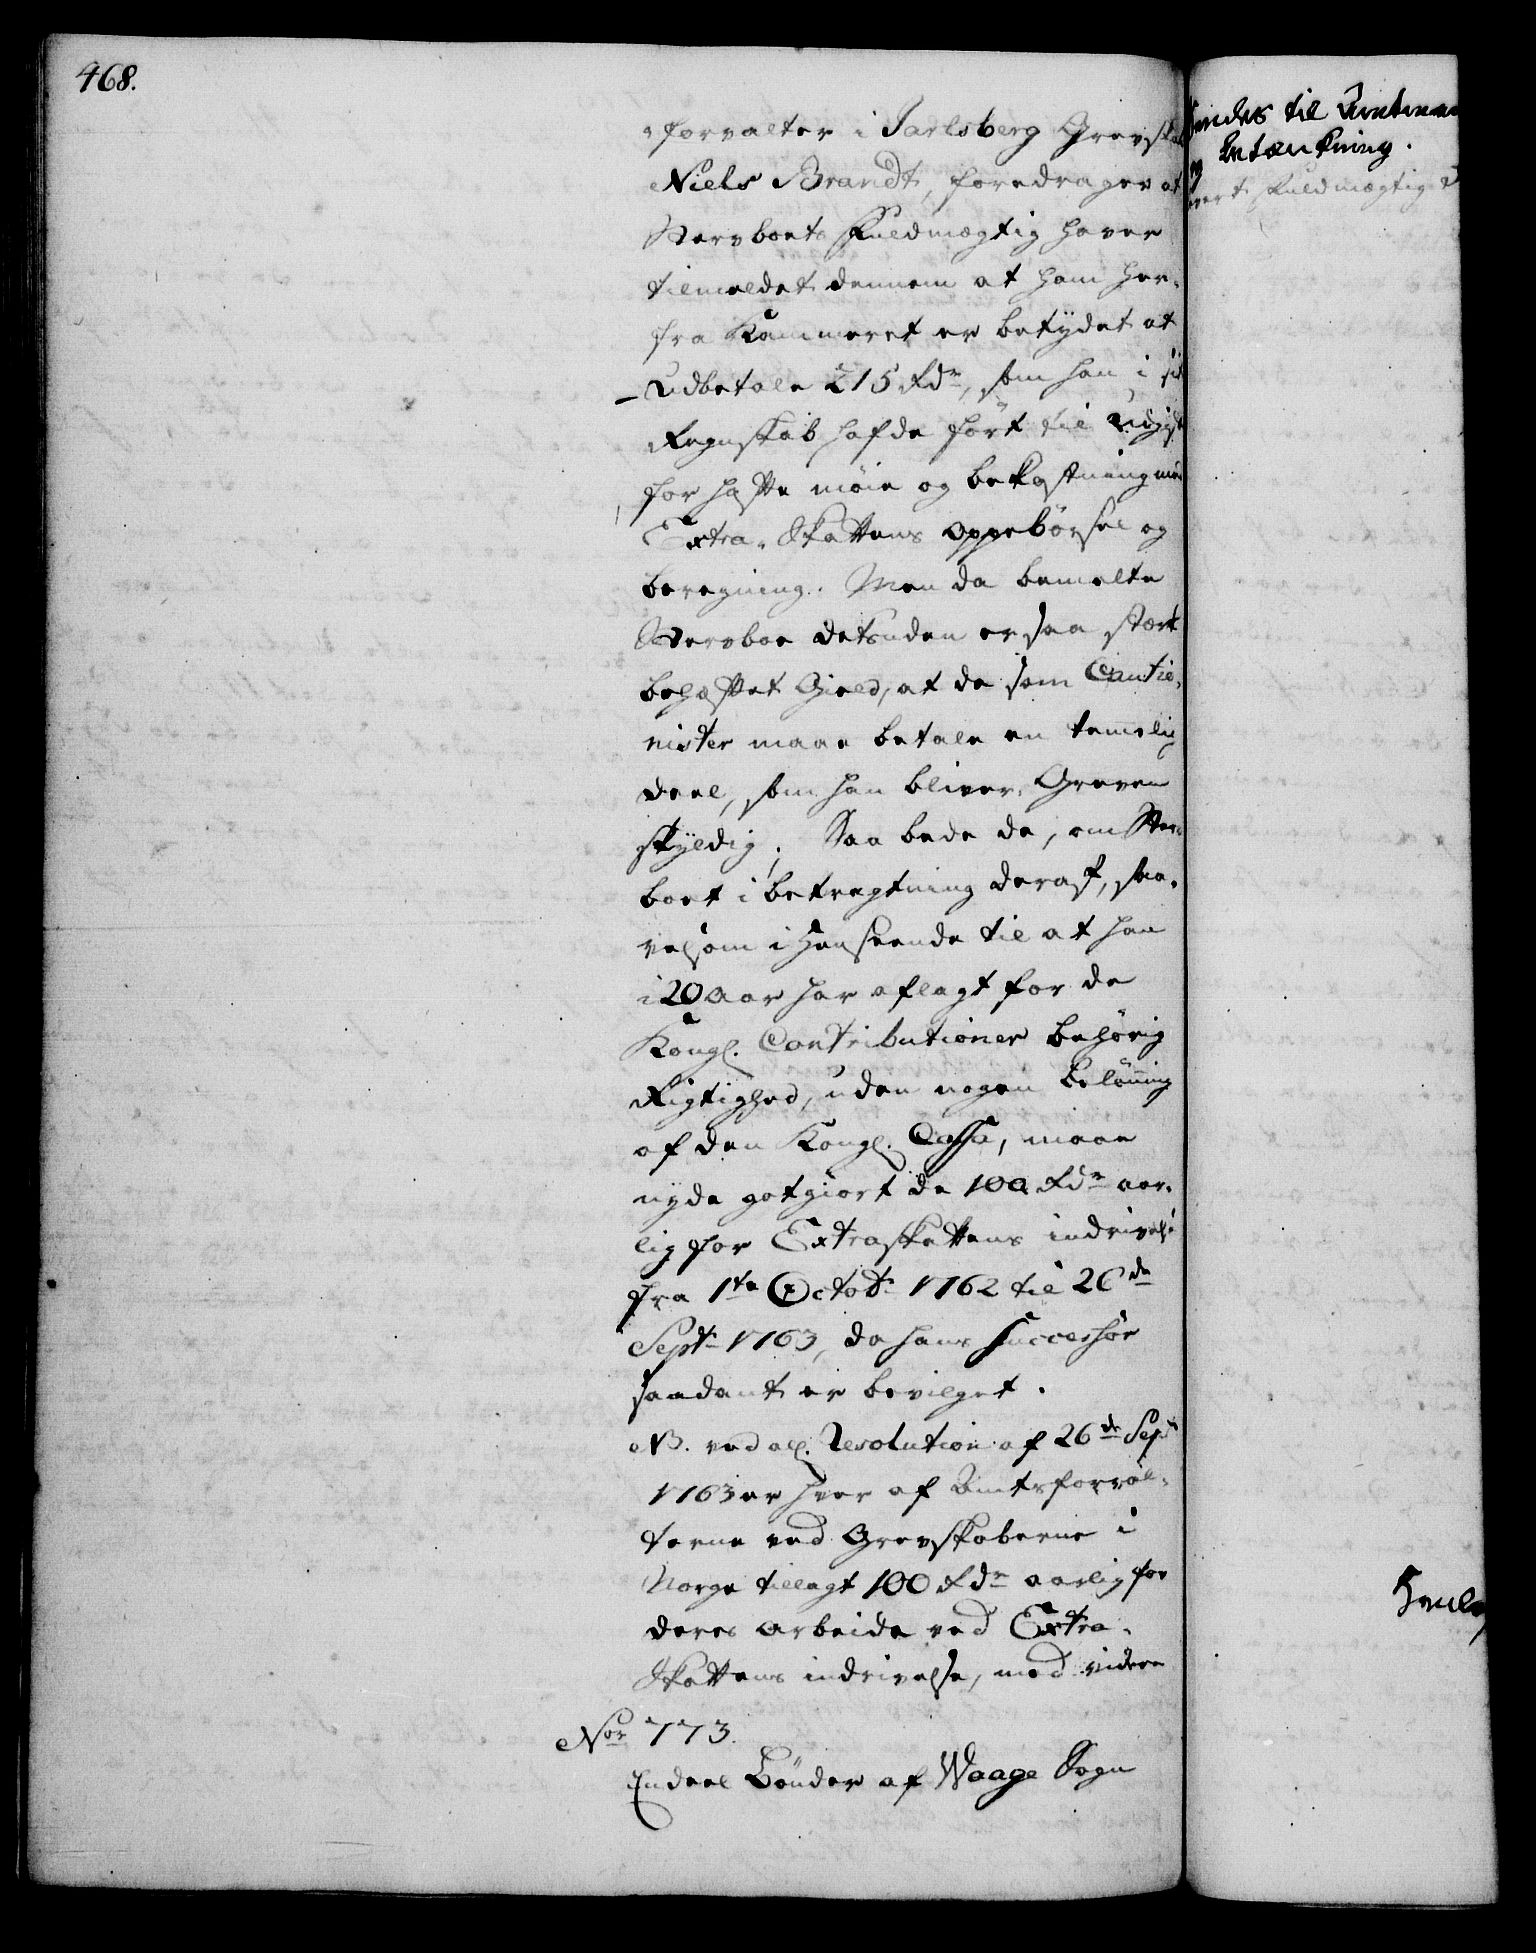 468.
forvalter i Jarlsberg Grevskab
Niels Brandt, foredrager at
Stervboets Fuldmægtig haver
tilmeldet dennem at ham her-
fra Kammeret er betydet at
Udbetale 215 Rdr, som han i sit
Regnskab hafde ført til Udgift
for hafte møie og bekostning med
Extra-Skattens oppebørsel og
beregning. Men da bemelte
Stervboe desuden er saa stærk
behæftet Gield, at de som Cautio-
nister maae betale en temmelig
deel, som han bliver Greven
skyldig; Saa bede de, om Sterv-
boet i betragtning deraf, saa-
velsom i Henseende til at han
i 20 Aar har aflagt for de
Kongl. Contributioner behørig
Rigtighed, uden nogen belønning
af den Kongl. Cassa, maae
nyde gotgiort de 100 Rdr aar-
lig for Extraskattens indrivelse
fra 1te Octobr 1762 til 26de
Septr 1763, da hans Successor
saadant er bevilget.
NB. ved all. Resolution af 26de Sept
1763 er hver af Amtsforval-
terne ved Grevskaberne i
Norge tillagt 100 Rdr aarlig for
deres Arbeide ved Extra-
Skattens indrivelse, med videre
Nor 773.
Endeel Bønder af Waage Sogn
sendes til
betænkning.
Fuldmægtig